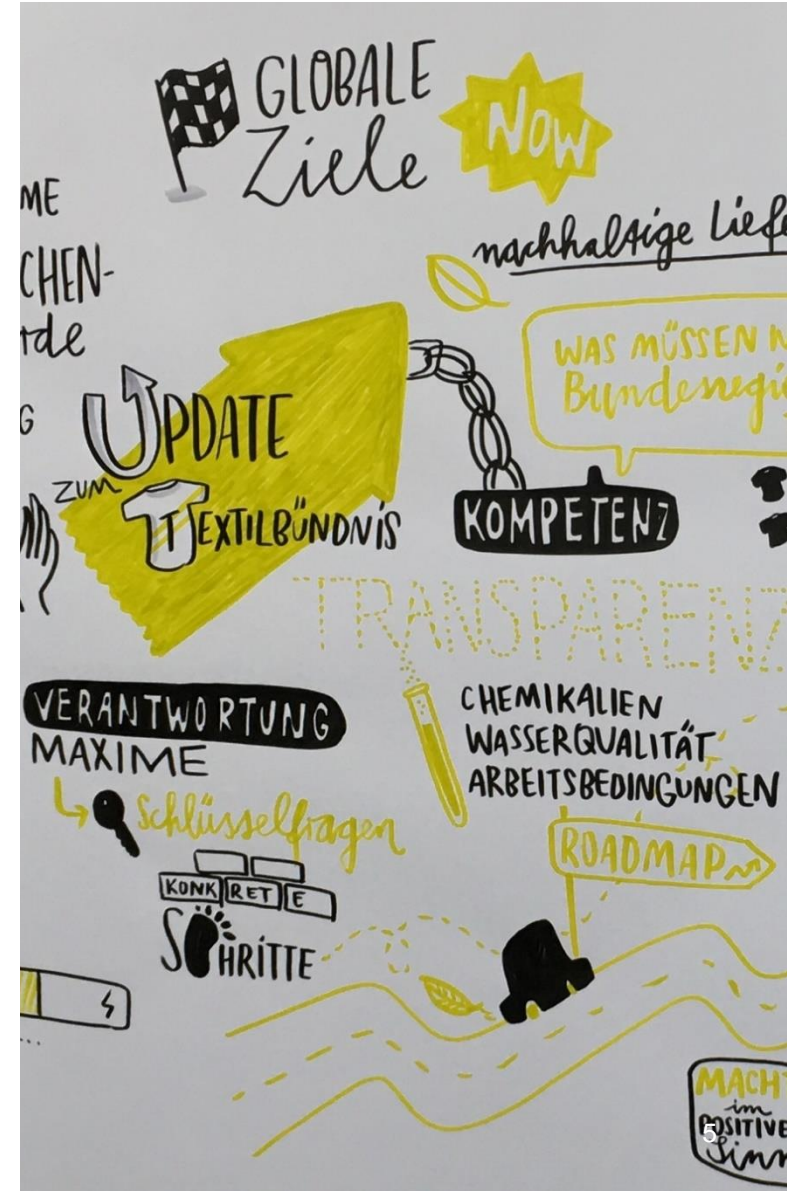 GLOBALE
Ziele
NOW
ME
CHEN-
rde
G
nachhaltige Liefe
WAS MÜSSEN
Bundesregi
UPDATE
ZUM
TEXTILBÜNDNIS
KOMPETENZ
TRANSPARENZ
VERANTWORTUNG
MAXIME
Schlüsselfragen
KONKRETE
SCHRITTE
CHEMIKALIEN
WASSERQUALITÄT
ARBEITSBEDINGUNGEN
ROADMAP
MACHT
im
POSITIVE
Sinn
5